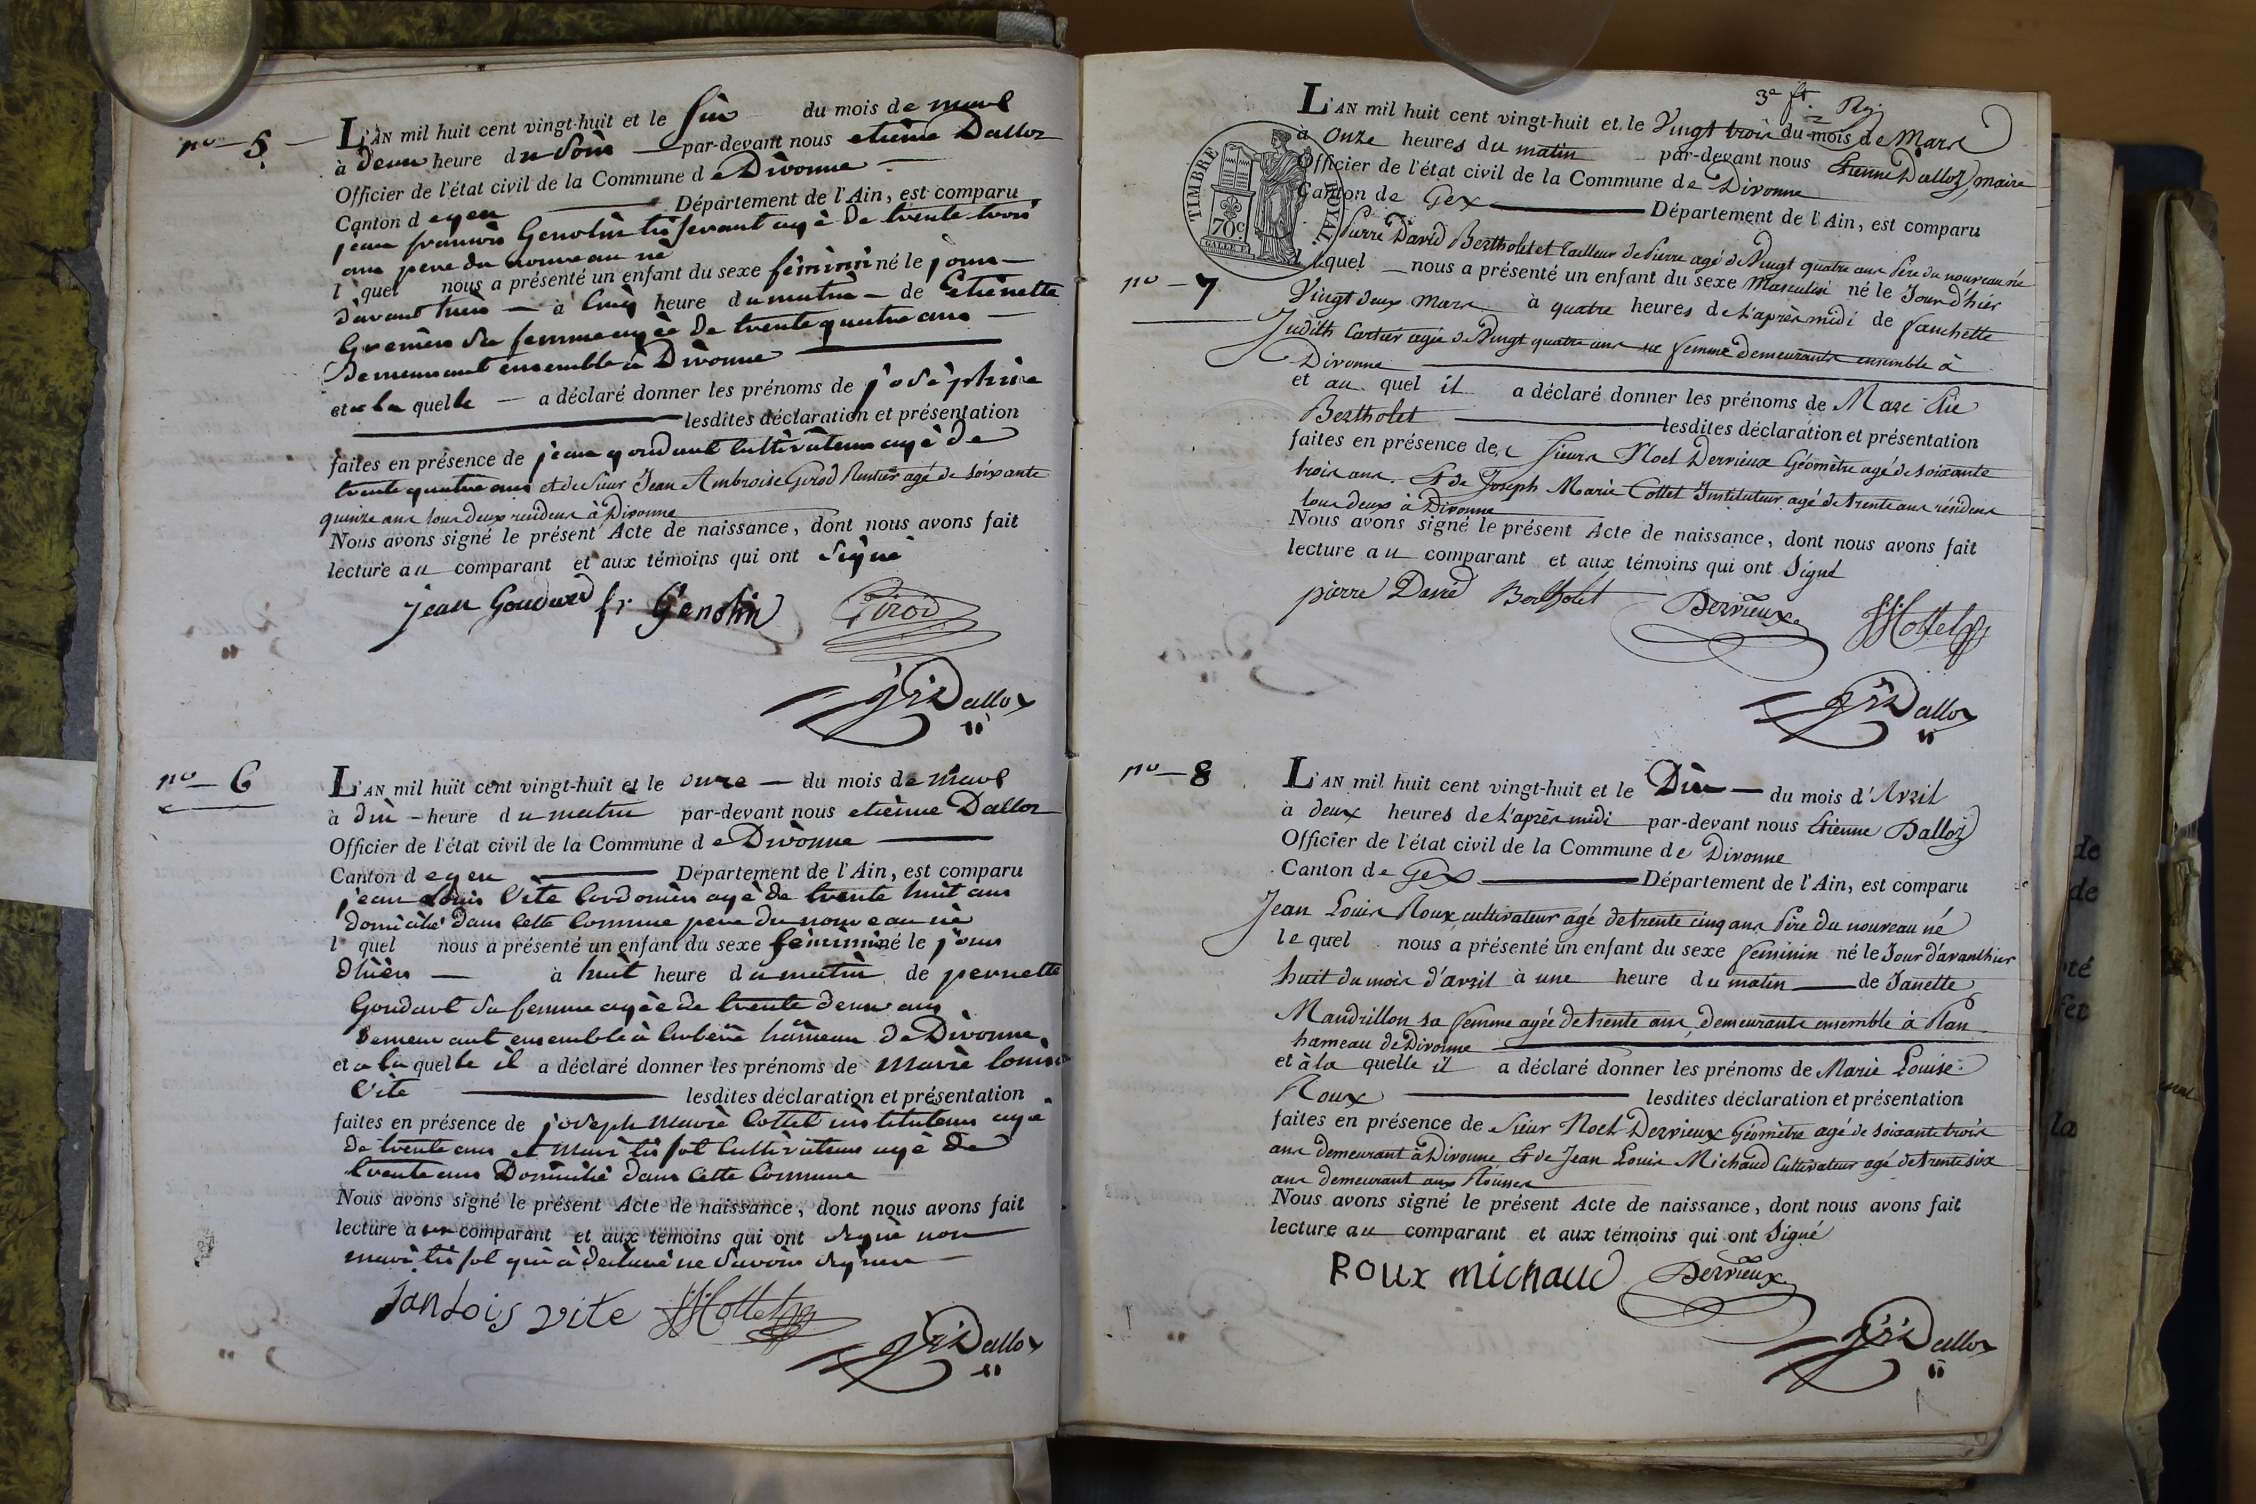 no 5
L'AN mil huit cent vingt-huit et le six du mois de mars
à deux heure du soir par-devant nous etiene Dalloz
Officier de l'état civil de la Commune de Divonne
Canton de gex Département de l'Ain, est comparu
jean francois Genolin tisserant agé de trente trois
ans pere du nouveau né
l quel nous a présenté un enfant du sexe féminin né le jour
davant hier à cinq heure du matin de Etienette
sa femme agée de trente quatre ans
demeurant ensemble à Divonne
et a la quelle a déclaré donner les prénoms de joséphine
lesdites déclaration et présentation
faites en présence de jean goudard cultivateur agé de
trente quatre ans et de Sieur Jean Ambroise Girod Rentier agé de soixante
quinze ans tous deux résidens à Divonne
Nous avons signé le présent Acte de naissance, dont nous avons fait
lecture au comparant et aux témoins qui ont signé
jean Goudard fr Genolin Girod
Dalloz
no 6
L'AN mil huit cent vingt-huit et le onze du mois de mars
à dix heure du matin par-devant nous etienne Dalloz
Officier de l'état civil de la Commune de Divonne
Canton de gex Département de l'Ain, est comparu
jean Louis Vite Cordonier agé de trente huit ans
domicilié dans cette Commune pere du nouveau né
l quel nous a présenté un enfant du sexe féminin né le jour
dhier à huit heure du matin de pernette
Goudard sa femme agée de trente deux ans
demeurant ensemble à arbere hameau de Divonne
et a la quelle il a déclaré donner les prénoms de marie louise
Vite lesdites déclaration et présentation
faites en présence de joseph marie Cottet instituteur agé
de trente ans et cultivateur agé de
trente ans Domicilié dans cette Commune
Nous avons signé le présent Acte de naissance, dont nous avons fait
lecture au comparant et aux témoins qui ont signé non
qui à déclaré ne savoir signer
Jan Lois vite Cottet
Dalloz
3e ft.
L'AN mil huit cent vingt-huit et le Vingt trois du mois de Mars
à onze heures du matin par-devant nous Etienne Dalloz maire
Officier de l'état civil de la Commune de Divonne
Canton de Gex Département de l'Ain, est comparu
TIMBRE ROYAL
70c.
Pierre David Bertholet et Tailleur de Pierre agé de Vingt quatre ans Père du nouveau né
no 7
lequel nous a présenté un enfant du sexe Masculin né le Jour d'hier
Vingt deux Mars à quatre heures de l'après midi de fanchette
Judith Cartier agée de Vingt quatre ans sa femme demeurants ensemble à
Divonne
et au quel il a déclaré donner les prénoms de Marc Elie
Bertholet lesdites déclaration et présentation
faites en présence de Sieurs Noel Dervieux Géomètre agé de soixante
trois ans. Et de Joseph Marie Cottet Instituteur agé de trente ans résidens
tous deux à Divonne
Nous avons signé le présent Acte de naissance, dont nous avons fait
lecture au comparant et aux témoins qui ont Signé
pierre David Bertholet Dervieux Cottet
Dalloz
no 8
L'AN mil huit cent vingt-huit et le Dix du mois d'Avril
à deux heures de l'après midi par-devant nous Etienne Dalloz
Officier de l'état civil de la Commune de Divonne
Canton de Gex Département de l'Ain, est comparu
Jean Louis Roux cultivateur agé de trente cinq ans Père du nouveau né
le quel nous a présenté un enfant du sexe feminin né le Jour d'avanthier
huit du mois d'avril à une heure du matin de Janette
Mandrillon sa femme agée de trente ans, demeurants ensemble à Plan
hameau de Divonne
et à la quelle il a déclaré donner les prénoms de Marie Louise
Roux lesdites déclaration et présentation
faites en présence de Sieur Noel Dervieux Géomètre agé de soixante trois
ans demeurant à Divonne Et de Jean Louis Michaud Cultivateur agé de trente six
ans demeurant aux
Nous avons signé le présent Acte de naissance, dont nous avons fait
lecture au comparant et aux témoins qui ont Signé
Roux michaud Dervieux
Dalloz